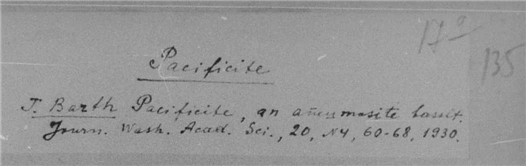 17a
135
Pacificite
T. Barth Pacificite, an basalt.
Journ. Wash. Acad. Sci., 20, N4, 60-68, 1930.